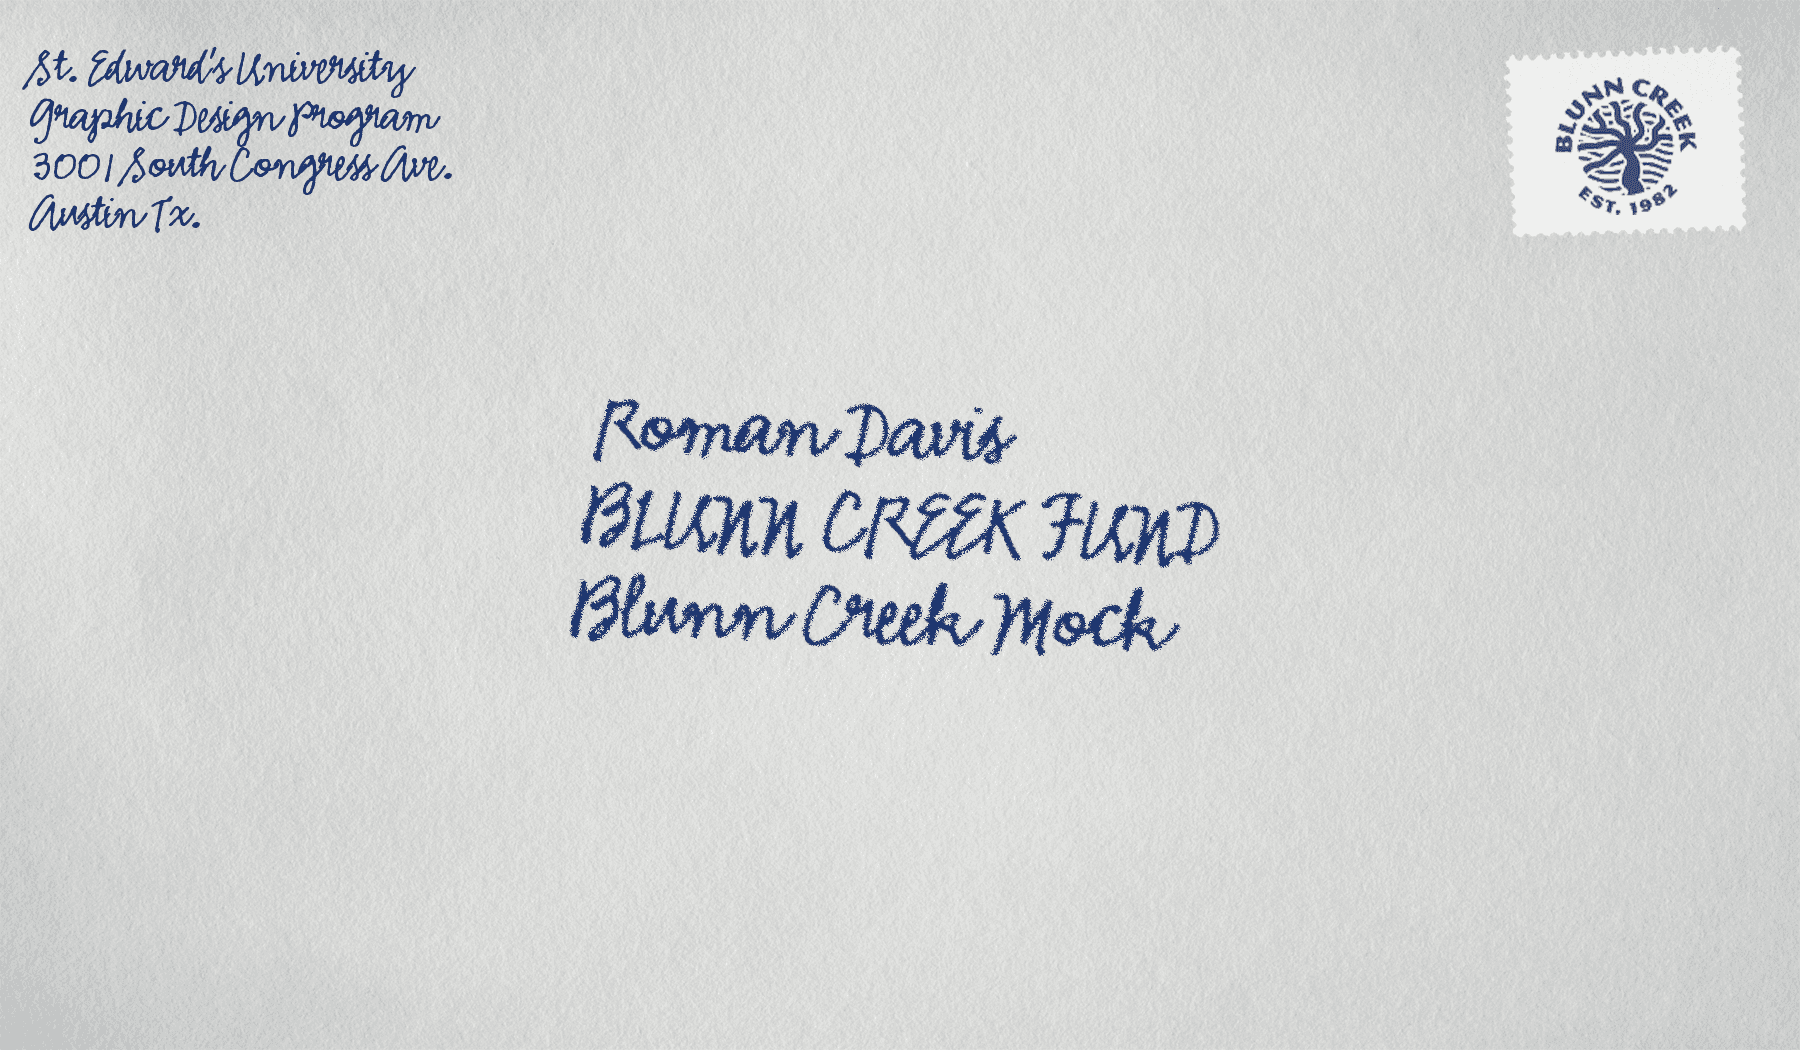 St. Edward's University
Graphic Design Program
3001 South Congress Ave.
Austin Tx.
BLUNN CREEK
EST. 1982
Roman Davis
BLUNN CREEK FUND
Blunn Creek Mock